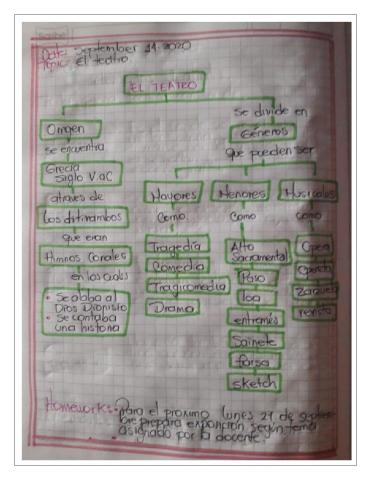 Date: September 14-2020
Topic: el teatro
EL TEATRO
Origen
se encuentra
Grecia
Siglo V aC
através de
Los ditirambos
que eran
Himnos Corales
en los cuales
• Se alaba al
Dios Dionisio
• Se contaba
una historia
se divide en
Géneros
que pueden ser
Mayores
Como
Tragedia
Comedia
Tragicomedia
Drama
Menores
Como
Auto
Sacramental
Paso
loa
entremés
Sainete
farsa
sketch
Musicales
como
Opera
Opereta
Zarzuela
revista
Homeworks: Para el proximo lunes 21 de septiem-
bre prepara exposición según tema
asignado por la docente.